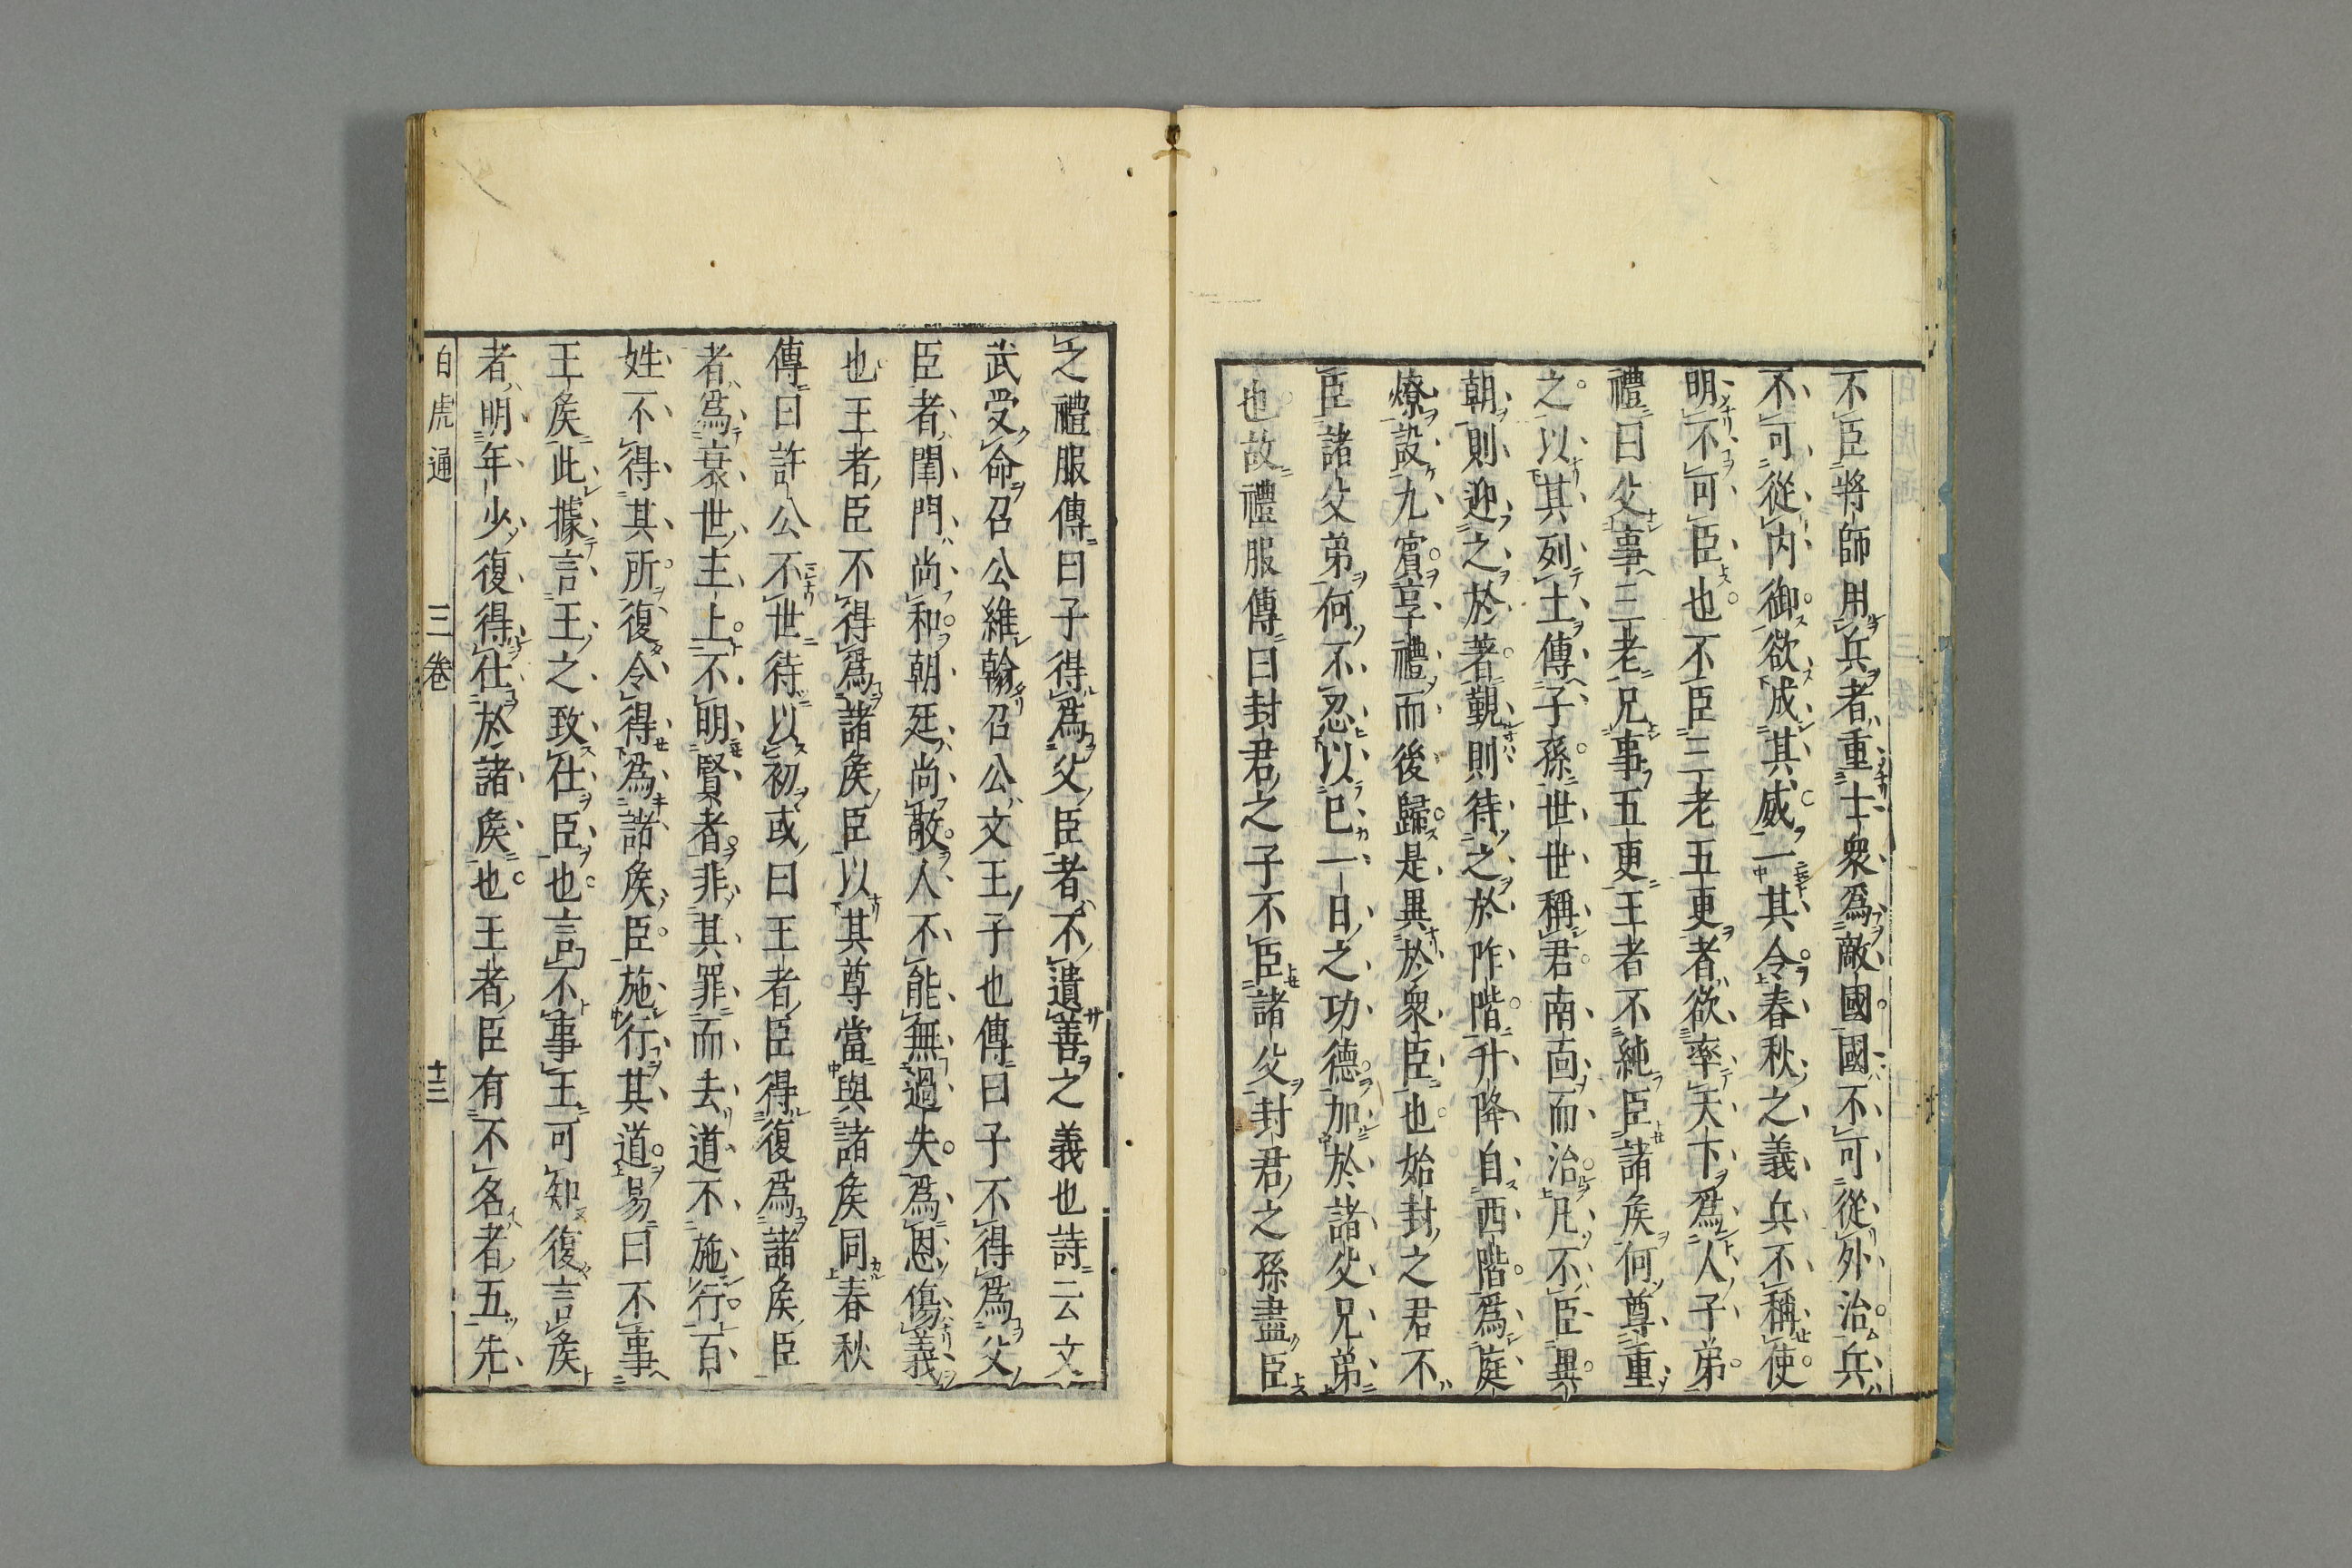 不臣將師用兵者重士衆爲敵國國不可從外治兵
不可從內御欲成其威一其令春秋之義兵不稱使
明不可臣也不臣三老五更者欲率天下爲人子弟
禮曰父事三老兄事五更王者不純臣諸矦何尊重
之以其列土傳子孫世世稱君南面而治凡不臣異
朝則迎之於著覲則待之於阼階升降自西階爲庭
燎設九賓享禮而後歸是異於衆臣也始封之君不
臣諸父弟何不忍以巳一日之功德加於諸父兄弟
也故禮服傳曰封君之子不臣諸父封君之孫盡臣
之禮服傳曰子得爲父臣者不遺善之義也詩云文
武受命召公維翰召公文王子也傳曰子不得爲父
臣者閨門尚和朝廷尚敬人不能無過失爲恩傷義
也王者臣不得爲諸矦臣以其尊當與諸矦同春秋
傳曰許公不世待以初或曰王者臣得復爲諸矦臣
者爲衰世主上不明賢者非其罪而去道不施行百
姓不得其所復令得爲諸矦臣施行其道易曰不事
王矦此據言王之致仕臣也言不事王可知復言矦
者明年少復得仕於諸矦也王者臣有不名者五先
白虎通 三卷 十三